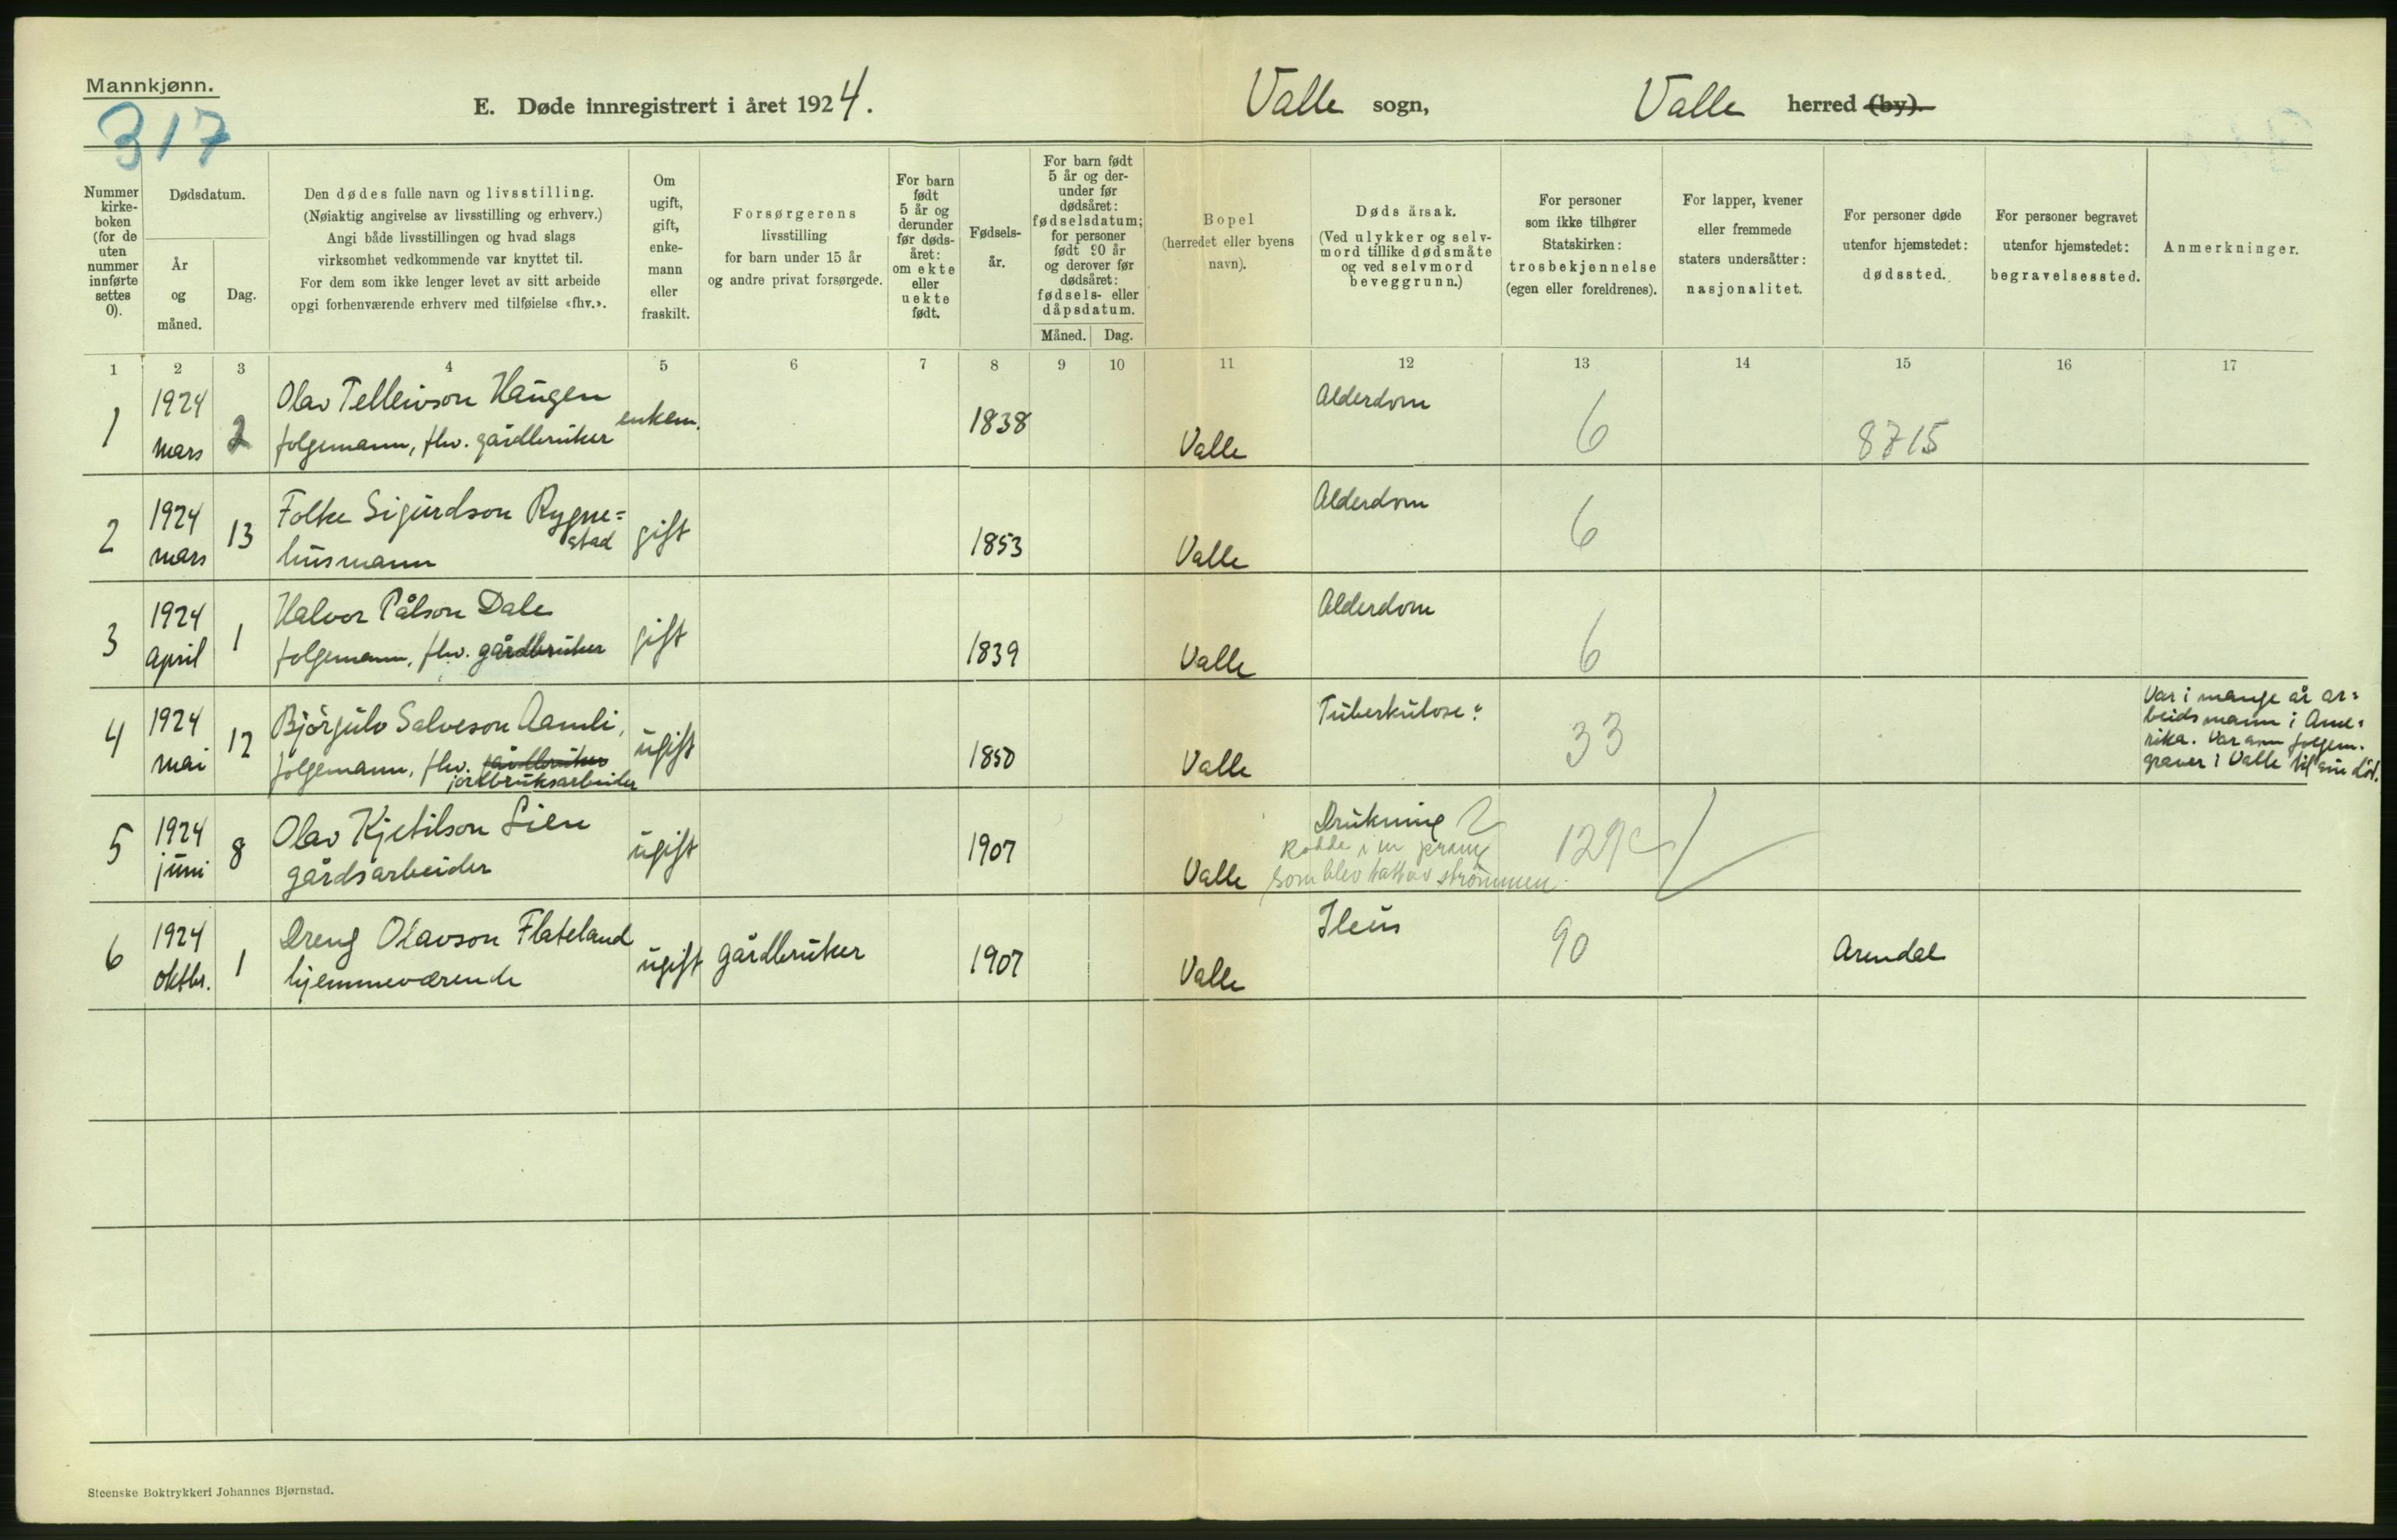 Mannkjønn.
317
E. Døde innregistrert i året 1924.
Valle sogn,
Valle herred (by).
Nummer kirke-boken (for de uten nummer innførte settes 0).
Dødsdatum.
År og måned.
Dag.
Den dødes fulle navn og livsstilling.
(Nøiaktig angivelse av livsstilling og erhverv.)
Angi både livsstillingen og hvad slags
virksomhet vedkommende var knyttet til.
For dem som ikke lenger levet av sitt arbeide
opgi forhenværende erhverv med tilføielse «fhv.».
Om ugift, gift, enke-mann eller fraskilt.
Forsørgerens
livsstilling
for barn under 15 år
og andre privat forsørgede.
For barn født 5 år og derunder før døds-året: om ekte eller uekte født.
Fødsels-år.
For barn født 5 år og der-under før dødsåret: fødselsdatum; for personer født 90 år og derover før dødsåret: fødsels- eller dåpsdatum.
Måned. Dag.
Bopel
(herredet eller byens
navn).
Døds årsak.
(Ved ulykker og selv-
mord tillike dødsmåte
og ved selvmord
beveggrunn.)
For personer
som ikke tilhører
Statskirken:
trosbekjennelse
(egen eller foreldrenes).
For lapper, kvener
eller fremmede
staters undersåtter:
nasjonalitet.
For personer døde
utenfor hjemstedet:
dødssted.
For personer begravet
utenfor hjemstedet:
begravelsessted.
Anmerkninger.
1 2 3 4 5 6 7 8 9 10 11 12 13 14 15 16 17
1 1924 mars 2 Olav Telleivson Haugen enkem. 1838 Valle Alderdom 6 8715
folgemann, fhv. gårdbruker
2 1924 mars 13 Folke Sigurdson Rygne=
stad
husmann gift 1853 Valle Alderdom 6
3 1924 april 1 Halvor Pålson Dale
folgemann, fhv. gårdbruker gift 1839 Valle Alderdom 6
4 1924 mai 12 Björgulv Salveson Aamli,
folgemann, fhv. gårdbruker
jordbruksarbeider ugift 1850 Valle Tuberkulose 33
Var i mange år ar=
beidsmann i Ame=
rika. Var som folgem.
i Valle til sin död.
5 1924 juni 8 Olav Kjetilson Lien
gårdsarbeider ugift 1907 Valle Drukning
Rodde i en pram
som blev tatt av strømmen. 129c
6 1924 oktbr. 1 Dreng Olavson Flateland
hjemmeværende ugift gårdbruker 1907 Valle Ileus 90 Arendal
Steenske Boktrykkeri Johannes Bjørnstad.